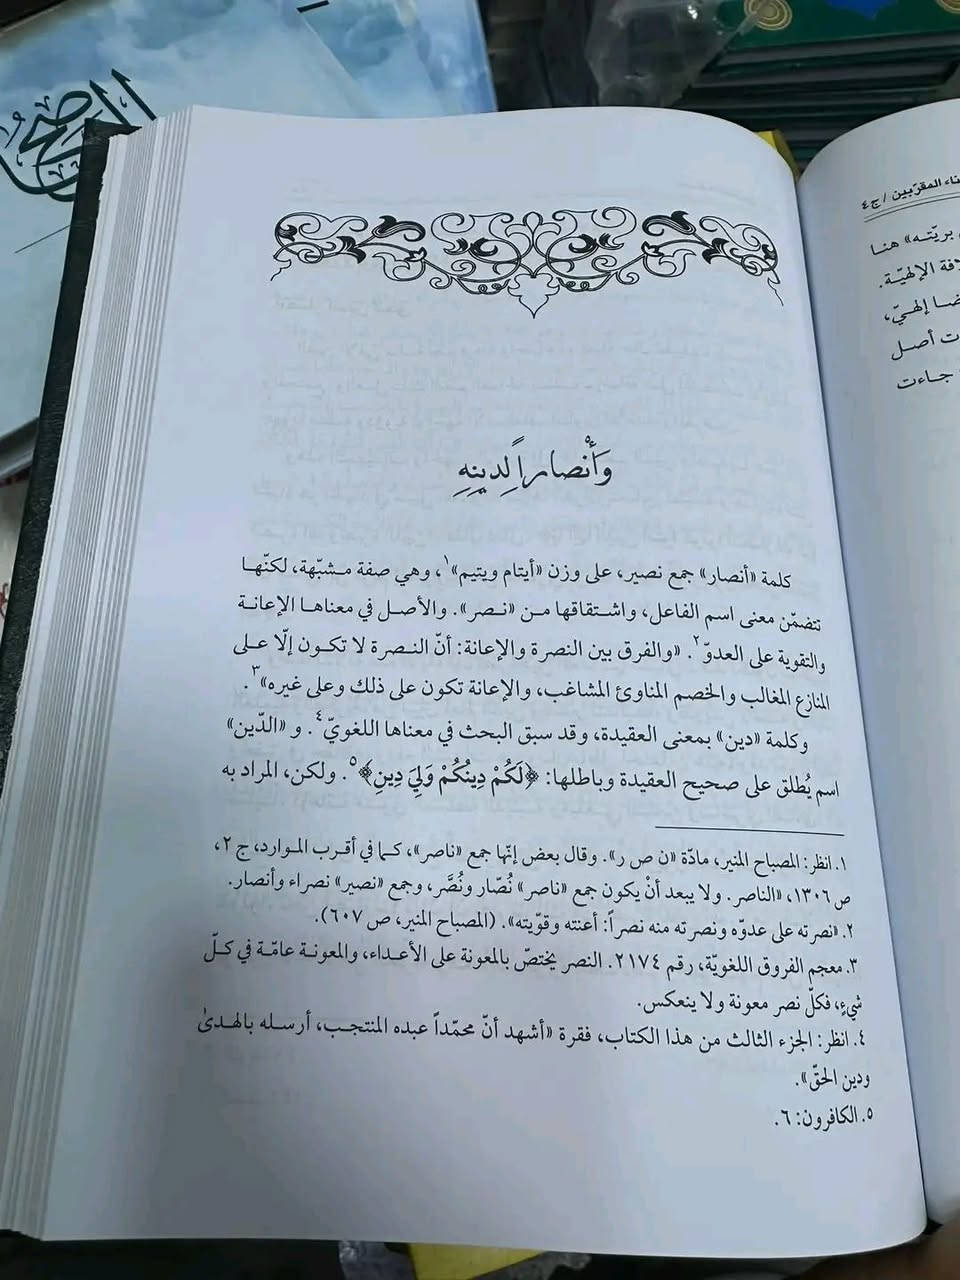 وَأَنْصاراً لِدِينِهِ
كلمة «أنصار» جمع نصير، على وزن «أيتام ويتيم»١، وهي صفة مشبّهة، لكنّها
تتضمّن معنى اسم الفاعل، واشتقاقها من «نصر». والأصل في معناها الإعانة
والتقوية على العدوّ٢. «والفرق بين النصرة والإعانة: أنّ النصرة لا تكون إلّا على
المنازع المغالب والخصم المناوئ المشاغب، والإعانة تكون على ذلك وعلى غيره»٣.
وكلمة «دين» بمعنى العقيدة، وقد سبق البحث في معناها اللغويّ٤. و «الدّين»
اسم يُطلق على صحيح العقيدة وباطلها: ﴿لَكُمْ دِينُكُمْ وَلِيَ دِينِ﴾٥. ولكن، المراد به
١. انظر: المصباح المنير، مادّة «ن ص ر». وقال بعض إنّها جمع «ناصر»، كما في أقرب الموارد، ج ٢،
ص ١٣٠٦، «الناصر. ولا يبعد أنْ يكون جمع «ناصر» نُصّار ونُصَّر، وجمع «نصير» نصراء وأنصار.
٢. «نصرته على عدوّه ونصرته منه نصراً: أعنته وقوّيته». (المصباح المنير، ص ٦٠٧).
٣. معجم الفروق اللغويّة، رقم ٢١٧٤. النصر يختصّ بالمعونة على الأعداء، والمعونة عامّة في كلّ
شيءٍ، فكلّ نصر معونة ولا ينعكس.
٤. انظر: الجزء الثالث من هذا الكتاب، فقرة «أشهد أنّ محمّداً عبده المنتجب، أرسله بالهدىٰ
ودين الحقّ».
٥. الكافرون: ٦.
المقرّبين / ج٤
بريّته» هنا
الإلهيّة.
إلهيّ،
أصل
جاءت